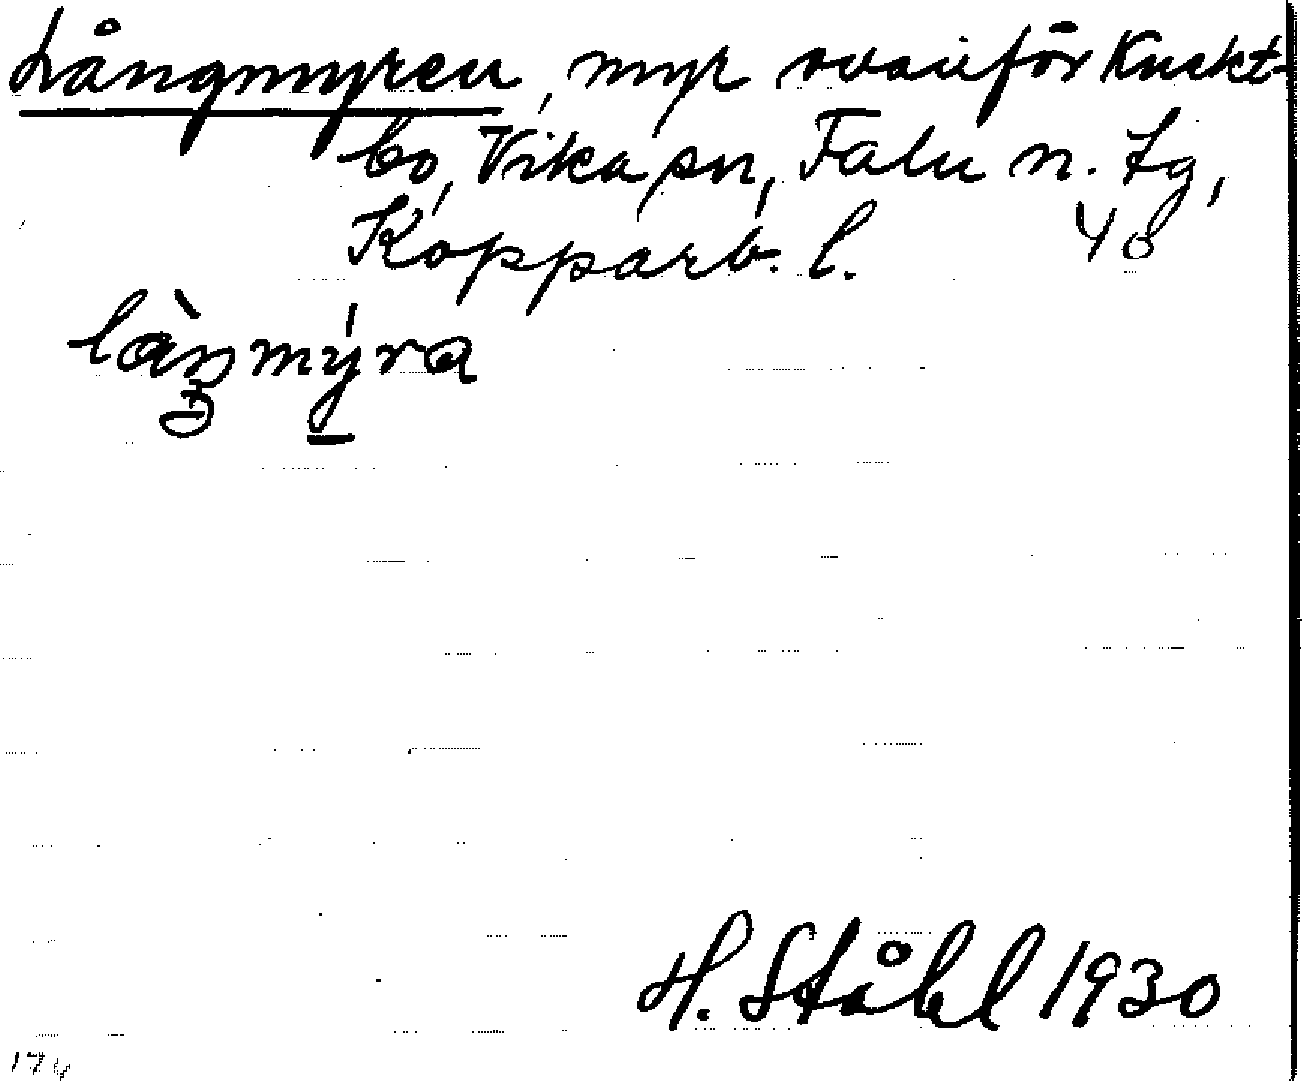 Långmyren, myr ovanför Knekt-
bo, Vika sn, Falu n. tg,
Kopparb. l. 48
làŋmýra
H. Ståhl 1930
174